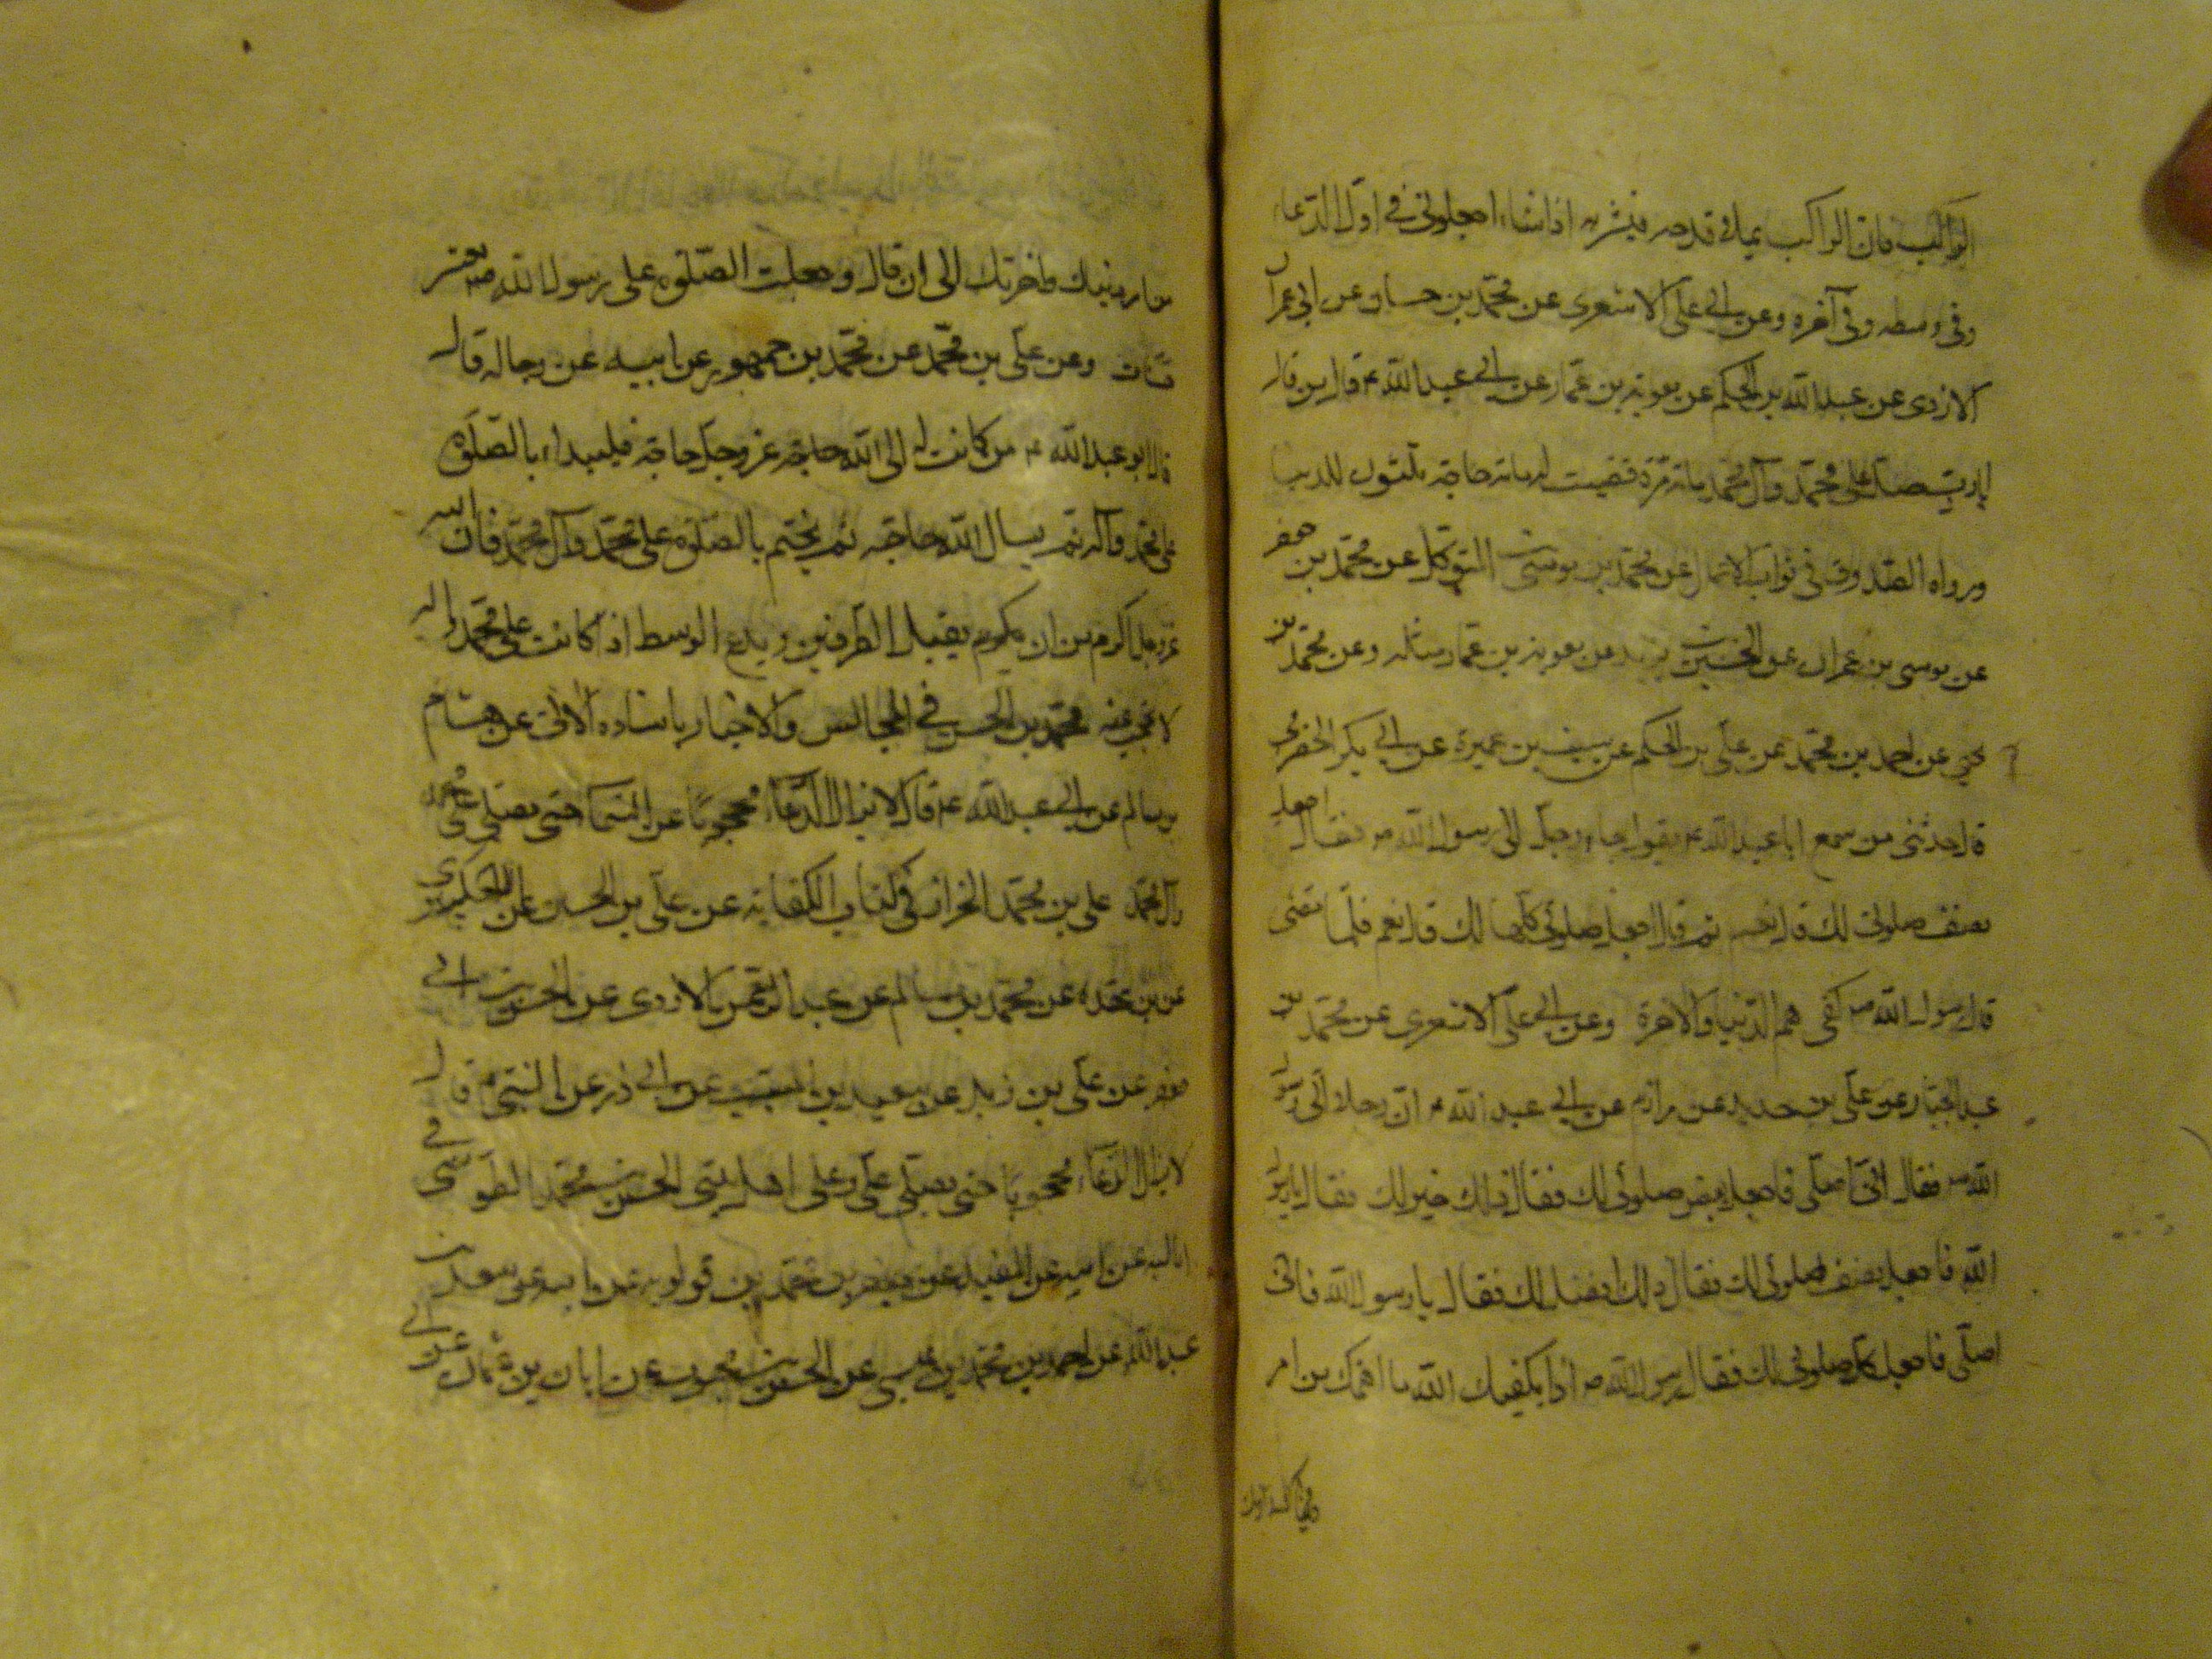 الراكب فان الراكب يملا قدحه فيشربه اذا شاء اجعلونى فى اول الدعاء
وفى وسطه وفى آخره وعن ابى على الاشعرى عن محمد بن حسان عن ابى عمران
الازدى عن عبد الله بن الحكم عن معوية بن عمار عن ابى عبد الله ع قال من قال
يا رب صل على محمد وآل محمد مائة مرة قضيت له مائة حاجة ثلثون للدنيا
ورواه الصدوق فى ثواب الاعمال عن محمد بن موسى المتوكل عن محمد بن جعفر
عن موسى بن عمران عن الحسين بن يزيد عن معوية بن عمار مثله وعن محمد بن
يحيى عن احمد بن محمد عن على بن الحكم عن سيف بن عميرة عن ابى بكر الحضرمى
قال حدثنى من سمع ابا عبد الله ع يقول جاء رجل الى رسول الله ص فقال اجعل
نصف صلوتى لك قال نعم ثم قال اجعل صلوتى كلها لك قال نعم فلما مضى
قال رسول الله ص كفى هم الدنيا والاخرة وعن ابى على الاشعرى عن محمد بن
عبد الجبار عن على بن حديد عن مرازم عن ابى عبد الله ع ان رجلا اتى رسول
الله ص فقال انى اصلى فاجعل بعض صلوتى لك فقال ذلك خير لك فقال يا رسول
الله فاجعل نصف صلوتى لك فقال ذلك افضل لك فقال يا رسول الله فانى
اصلى فاجعل كل صلوتى لك فقال رسول الله ص اذا يكفيك الله ما اهمك من امر
دنياك وآخرتك
وآخرتك الى ان قال وجعلت الصلوة على رسول الله ص بعشر
وعن على بن محمد عن محمد بن جمهور عن ابيه عن رجاله قال
قال ابو عبد الله ع من كانت له الى الله عز وجل حاجة فليبدا بالصلوة
على محمد وآله ثم يسال الله حاجته ثم يختم بالصلوة على محمد وآل محمد فان الله
عز وجل اكرم من ان يقبل الطرفين ويدع الوسط اذا كانت على محمد وآله
لا تحجب عنه محمد بن الحسن فى المجالس والاخبار باسناده الاتى عن هشام
بن سالم عن ابى عبد الله ع قال لا يزال الدعاء محجوبا عن السما حتى يصلى على محمد
وآل محمد على بن محمد الخزاز فى كتاب الكفاية عن على بن الحسين عن
عن عقده عن محمد بن سالم عن الازدى عن الحسن بن ابى
جعفر عن على بن زيد عن سعيد بن المسيب عن ابى ذر عن النبى ص قال
لا يزال الدعاء محجوبا حتى يصلى على وعلى اهل بيتى الحسن بن محمد الطوسى فى
اماليه عن ابيه عن المفيد عن جعفر بن محمد بن قولويه عن ابيه عن سعد بن
عبد الله عن احمد بن محمد بن عيسى عن الحسن بن محبوب عن ابان بن عثمان عن ابى